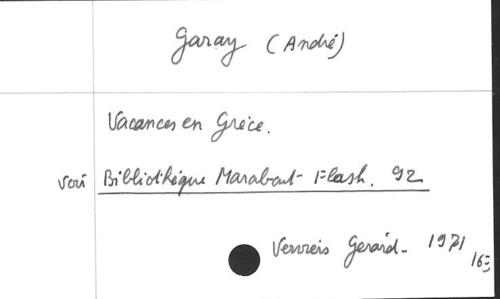 Garay (André)
Vacances en Grèce.
voir Bibliothèque Marabout Flash. 92
Gerard. 1971